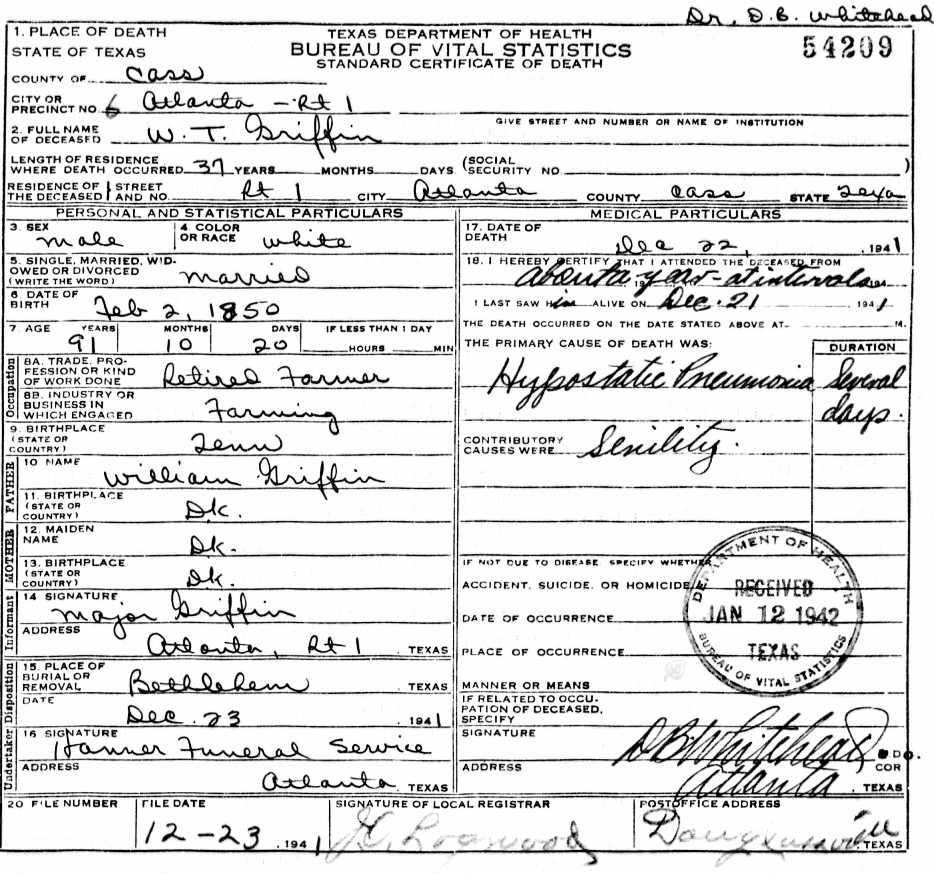 Dr. D.B. Whitehead
1. PLACE OF DEATH
STATE OF TEXAS
TEXAS DEPARTMENT OF HEALTH
BUREAU OF VITAL STATISTICS
STANDARD CERTIFICATE OF DEATH
54209
COUNTY OF Cass
CITY OR PRECINCT NO. 6 Atlanta - Rt 1
2. FULL NAME OF DECEASED W. T. Griffin
GIVE STREET AND NUMBER OR NAME OF INSTITUTION
LENGTH OF RESIDENCE WHERE DEATH OCCURRED 37 YEARS MONTHS DAYS (SOCIAL SECURITY NO. )
RESIDENCE OF THE DECEASED STREET AND NO. Rt 1 CITY Atlanta COUNTY Cass STATE Texa
PERSONAL AND STATISTICAL PARTICULARS
3. SEX male
4. COLOR OR RACE white
5. SINGLE, MARRIED, WIDOWED OR DIVORCED (WRITE THE WORD) married
6. DATE OF BIRTH Feb 2, 1850
7. AGE YEARS MONTHS DAYS IF LESS THAN 1 DAY
91 10 20 HOURS MIN
Occupation
8A. TRADE, PROFESSION OR KIND OF WORK DONE Retired Farmer
8B. INDUSTRY OR BUSINESS IN WHICH ENGAGED Farming
9. BIRTHPLACE (STATE OR COUNTRY) Tenn
FATHER
10 NAME William Griffin
11. BIRTHPLACE (STATE OR COUNTRY) Dk.
MOTHER
12. MAIDEN NAME Dk.
13. BIRTHPLACE (STATE OR COUNTRY) Dk.
Informant
14 SIGNATURE Major Griffin
ADDRESS Atlanta, Rt 1 TEXAS
Disposition
15. PLACE OF BURIAL OR REMOVAL Bethlehem TEXAS
DATE Dec. 23 1941
Undertaker
16 SIGNATURE Hanner Funeral Service
ADDRESS Atlanta TEXAS
MEDICAL PARTICULARS
17. DATE OF DEATH Dec 22, 1941
18. I HEREBY CERTIFY THAT I ATTENDED THE DECEASED FROM
about a year - at intervals 194
I LAST SAW Him ALIVE ON Dec. 21 1941
THE DEATH OCCURRED ON THE DATE STATED ABOVE AT M.
THE PRIMARY CAUSE OF DEATH WAS: DURATION
Hypostatic Pneumonia Several days.
CONTRIBUTORY CAUSES WERE Senility.
IF NOT DUE TO DISEASE SPECIFY WHETHER
ACCIDENT, SUICIDE, OR HOMICIDE
DATE OF OCCURRENCE
PLACE OF OCCURRENCE
MANNER OR MEANS
IF RELATED TO OCCUPATION OF DECEASED, SPECIFY
DEPARTMENT OF HEALTH
RECEIVED
JAN 12 1942
TEXAS
BUREAU OF VITAL STATISTICS
SIGNATURE D B Whitehead D.
COR
ADDRESS Atlanta TEXAS
20 FILE NUMBER
FILE DATE 12-23 1941
SIGNATURE OF LOCAL REGISTRAR
POSTOFFICE ADDRESS Douglassville TEXAS